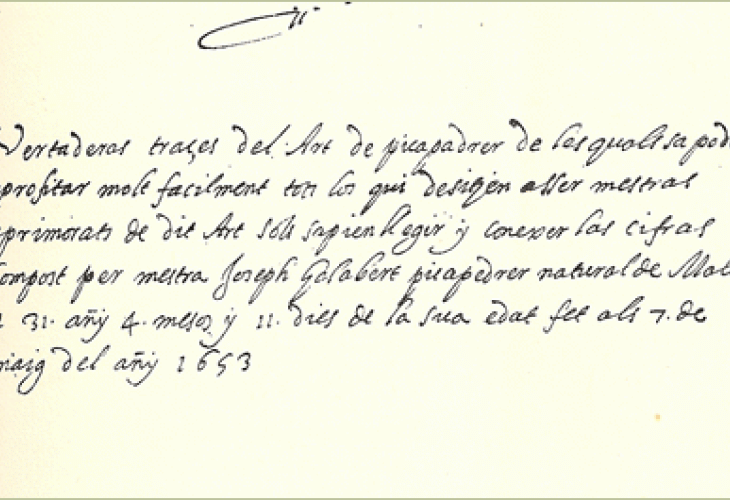 Vertaderas traçes del Art de picapadrer de les quals sa pod
profitar molt facilment tots los qui desitjen asser mestras
primorats de dit Art sols sapien llegir y conexer las cifras
compost per mestra Joseph Gelabert picapedrer natural de Mal
31. añy 4. mesos y 11. dies de la sua edat fet als 7. de
maig del añy 1653